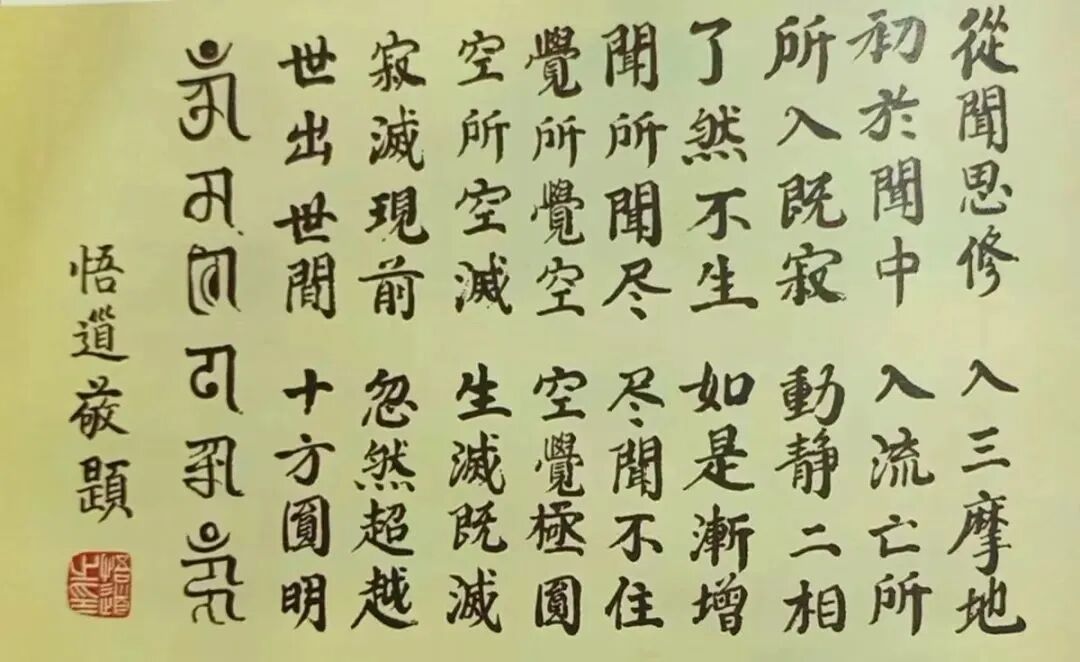 從聞思修 入三摩地
初於聞中 入流亡所
所入既寂 動靜二相
了然不生 如是漸增
聞所聞尽 尽聞不住
覺所覺空 空覺極圓
空所空滅 生滅既滅
寂滅現前 忽然超越
世出世間 十方圓明
悟道敬題
悟道之印